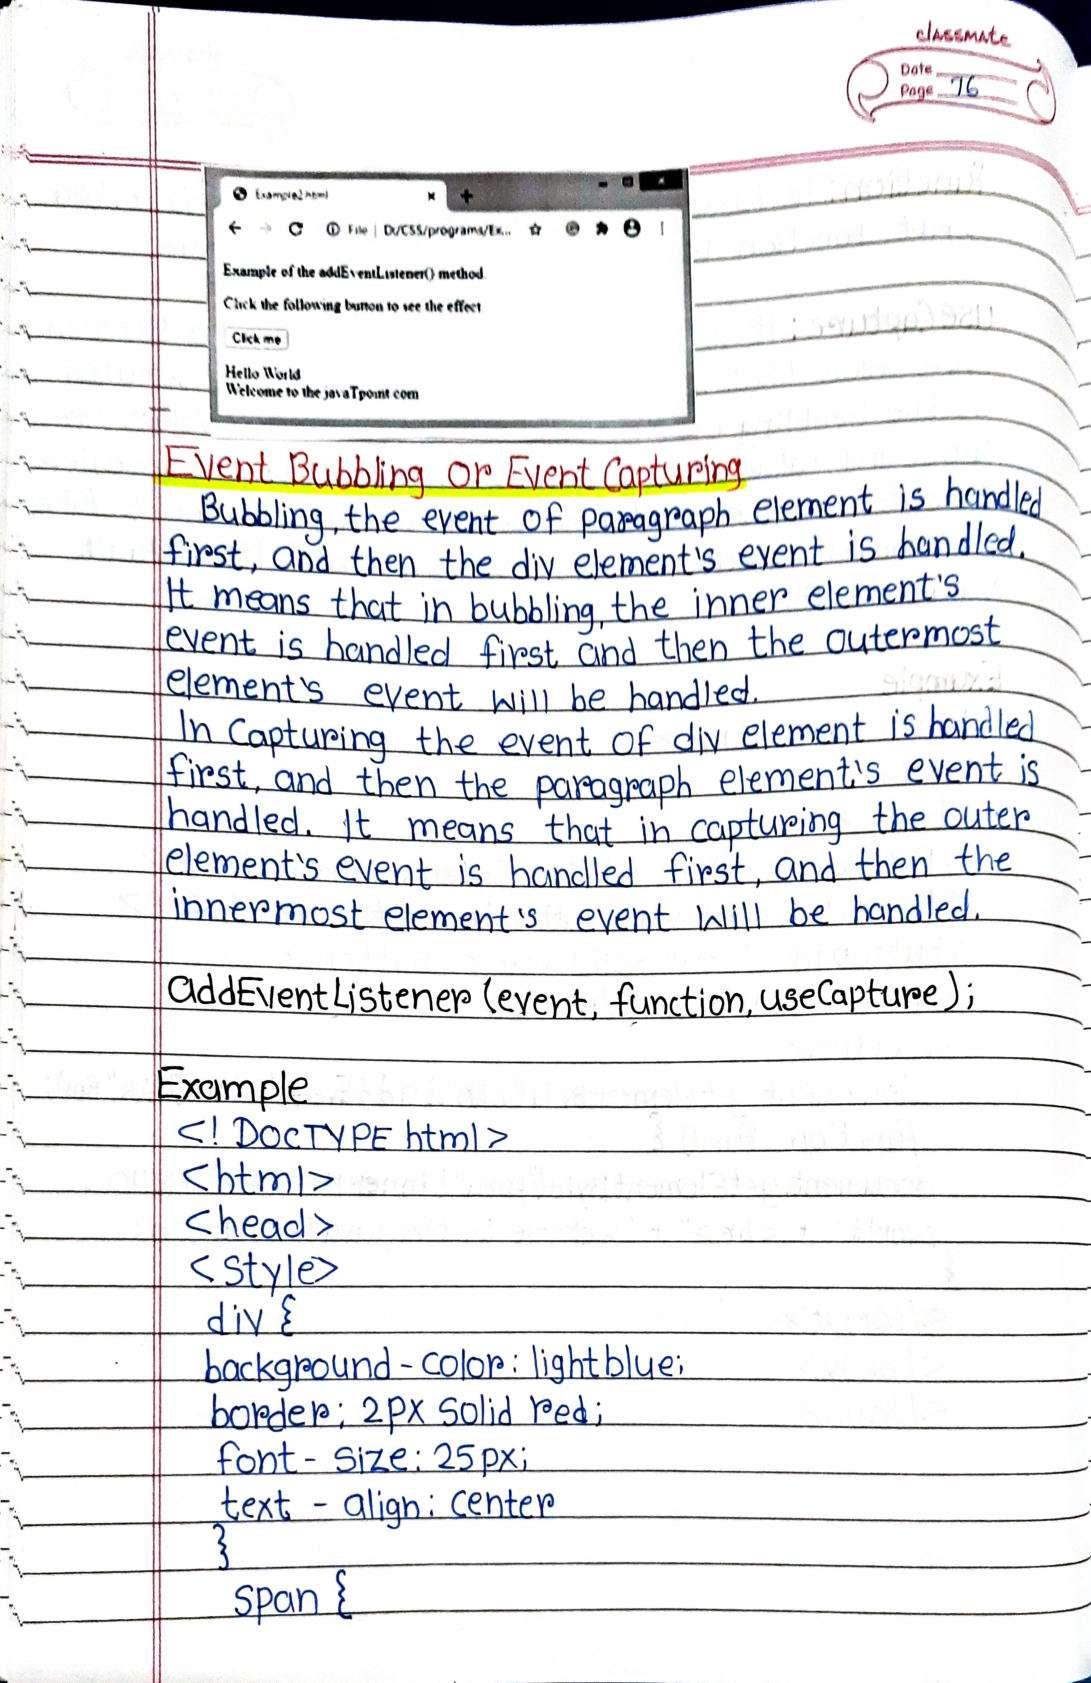 classmate
Date
Page 76
Example2.html
File | D:/CSS/programs/Ex...
Example of the addEventListener() method.
Click the following button to see the effect
Click me
Hello World
Welcome to the javaTpoint.com
Event Bubbling or Event Capturing
Bubbling, the event of paragraph element is handled
first, and then the div element's event is handled.
It means that in bubbling, the inner element's
event is handled first and then the outermost
element's event will be handled.
In Capturing the event of div element is handled
first, and then the paragraph element's event is
handled. It means that in capturing the outer
element's event is handled first, and then the
innermost element's event will be handled.
addEventListener (event, function, useCapture);
Example
<! DOCTYPE html>
<html>
<head>
<style>
div {
background-color: lightblue;
border: 2px solid red;
font-size: 25px;
text-align: center
}
span {